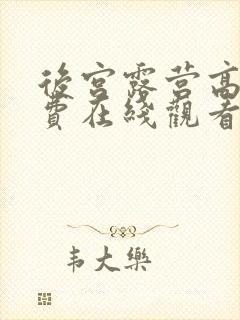 後宮露营高
費在綫觀看
韦大樂